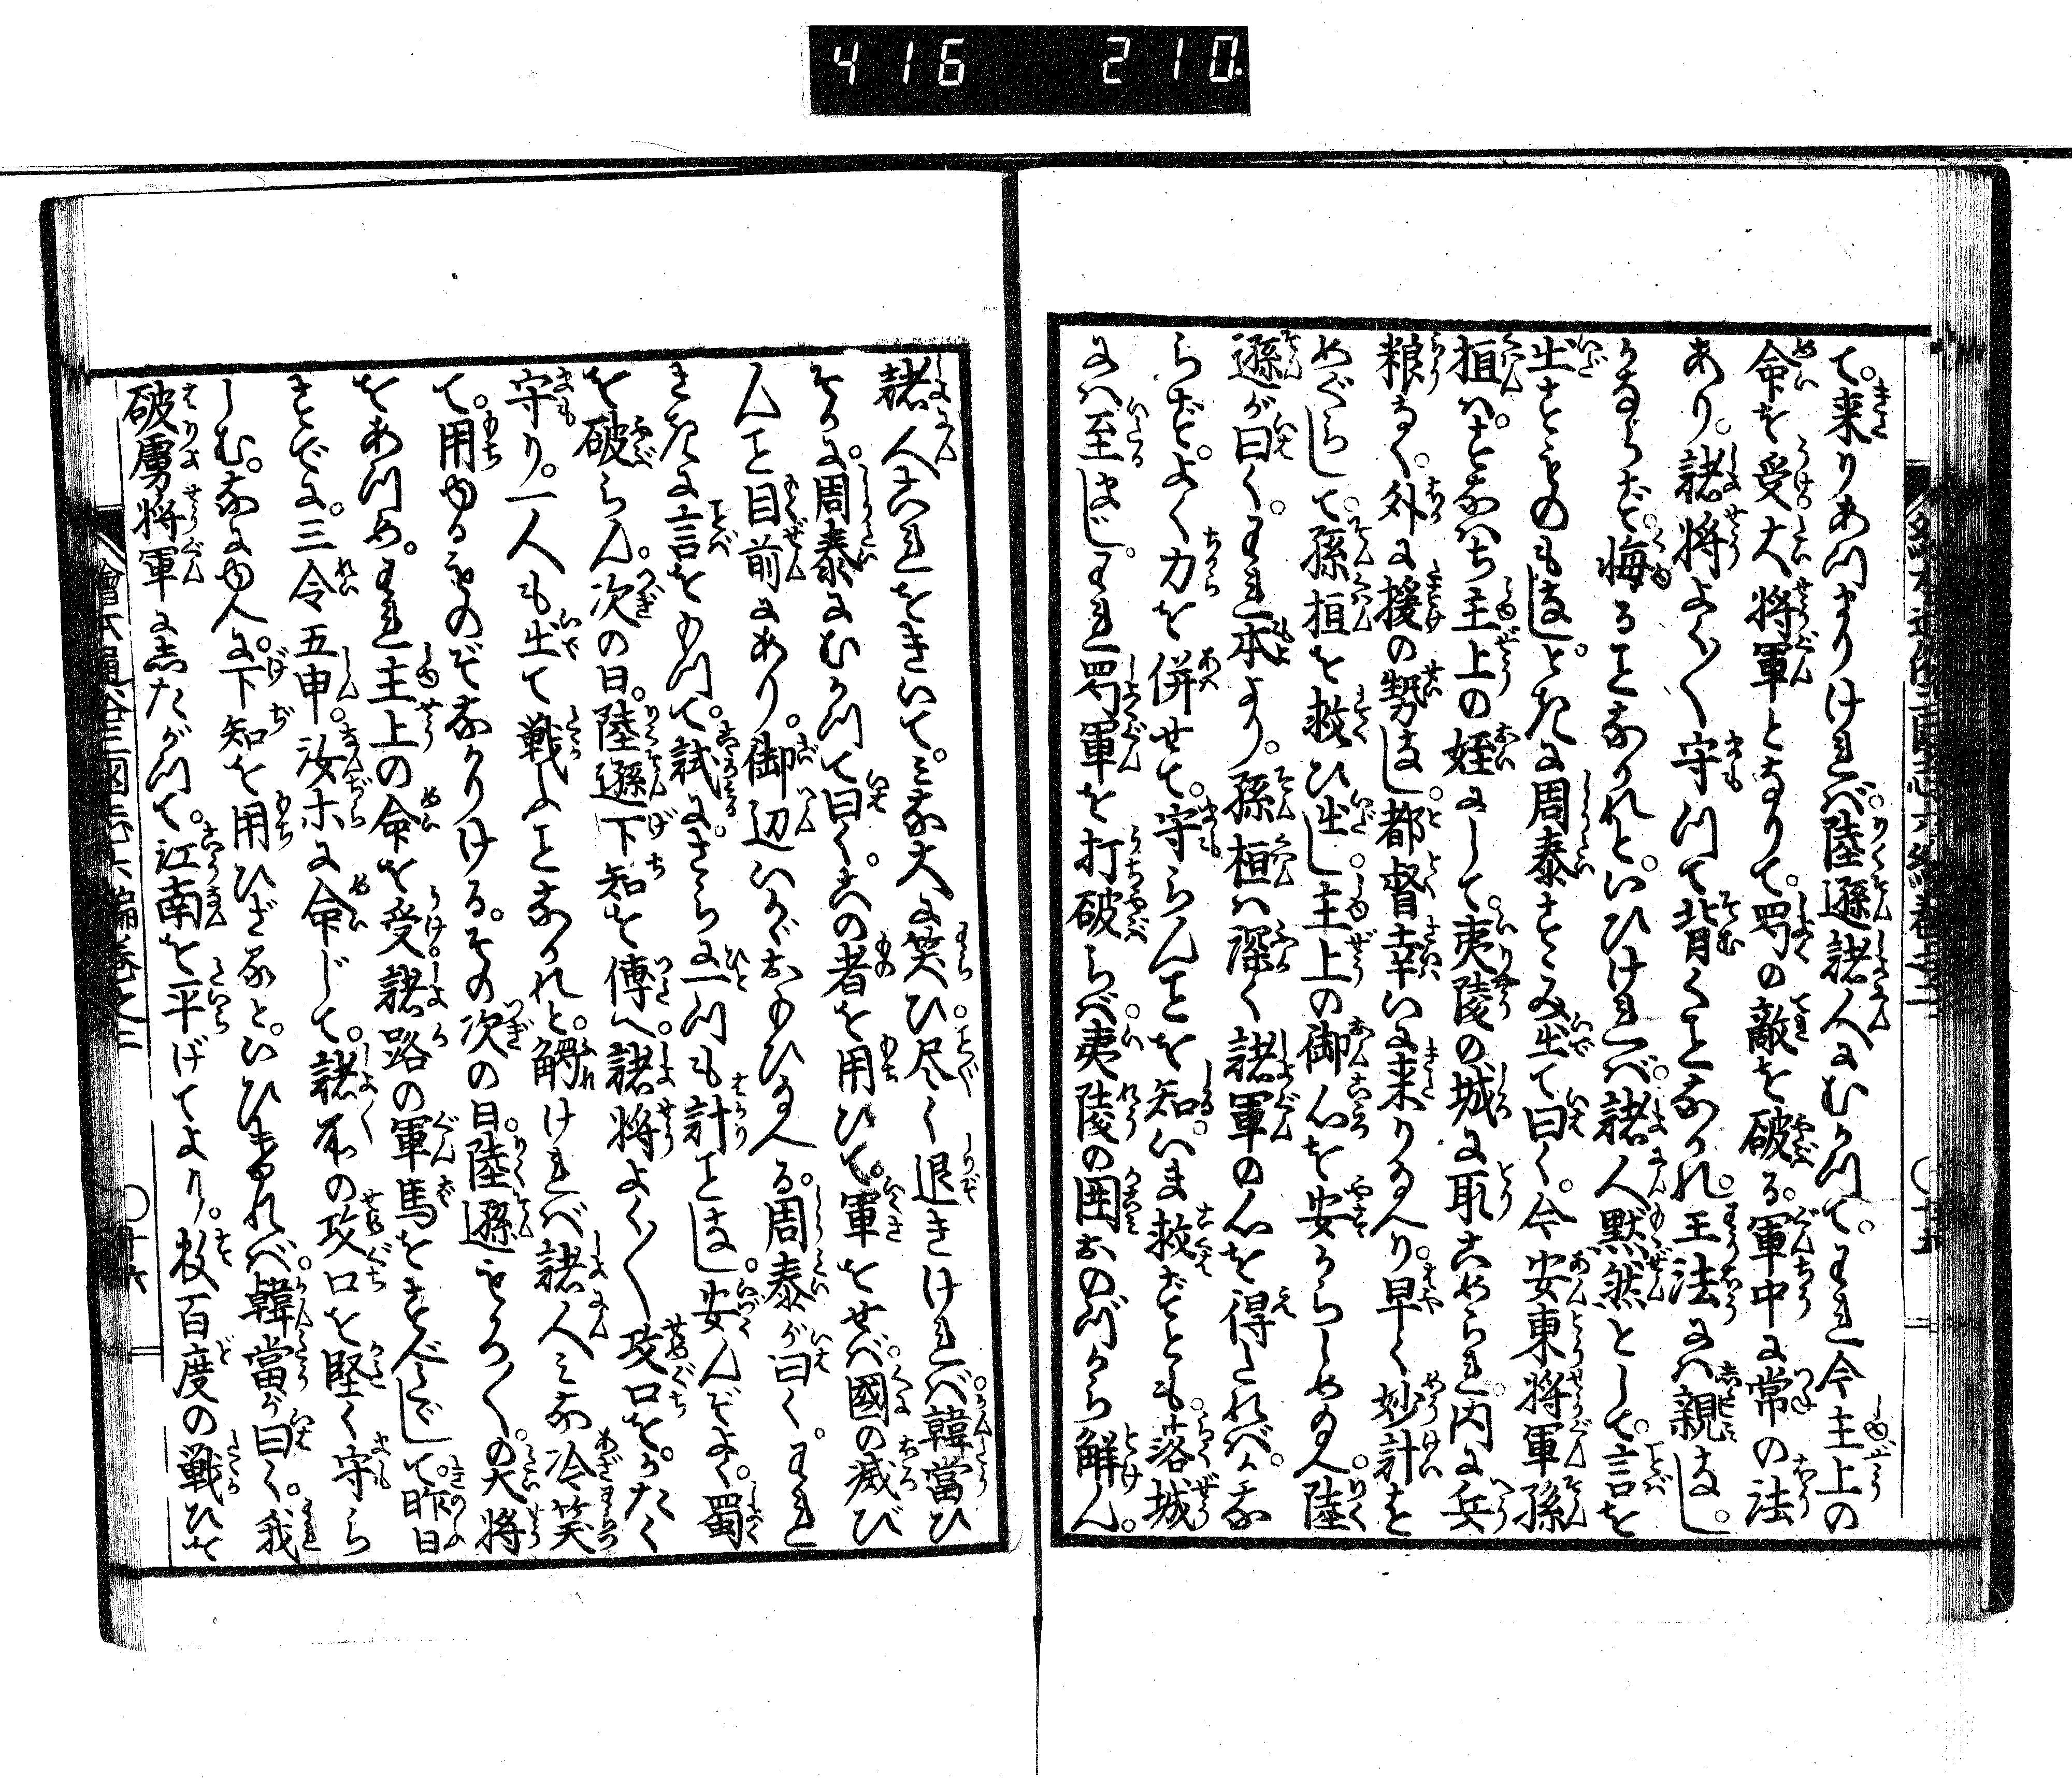 416 210
て。来りあつまりけれバ。陸遜諸人にむかつて。われ今主上の
命を受大将軍となりて。蜀の敵を破る。軍中に常の法
あり。諸将よく〳〵守つて背くことなかれ。王法にハ親なし。
かならず。悔ることなかれと。いひけれバ。諸人黙然として。言を
出すものもなし。ときに周泰すゝみ出て曰く。今安東将軍孫
桓ハ。すなハち主上の姪にして。夷陵の城に取こめられ。内に兵
粮なく。外に援の勢なし。都督幸いに来り給へり。早く妙計を
めぐらして。孫桓を救ひ出し。主上の御心を安からしめ給へ。陸
遜が曰く。われ本より。孫桓ハ深く諸軍の心を得たれバ。かな
らず。よく力を併せて。守らんことを知。いま救ずとも。落城
にハ至まじ。われ蜀軍を打破らバ。夷陵の囲おのづから解ん。
諸人これをきいて。みな大に笑ひ。尽く退きけれバ。韓當ひ
そかに。周泰にむかつて曰く。この者を用ひて。軍をせバ。國の滅び
んこと目前にあり。御辺いかゞおもひ給へる。周泰が曰く。われ
さきに言をもつて。試に。さらに一つも計ことなし。安んぞよく。蜀
を破らん。次の日。陸遜下知を傳へ。諸将よく〳〵攻口を。かたく
守り。一人も出て戦ふことなかれと。觸けれバ。諸人みな冷笑
て。用ゆるものぞなかりける。その次の日。陸遜もろ〳〵の大将
をあつめ。われ主上の命を受。諸路の軍馬をすべて。昨日
すでに。三令五申。汝ホに命じて。諸本の攻口を堅く守ら
しむ。なにゆへに。下知を用ひざると。いひけれバ。韓當が曰く。我
破虜将軍にしたがつて。江南を平げてより。数百度の戦ひを
○十五
繪本通俗三國志六編巻之三
○十六